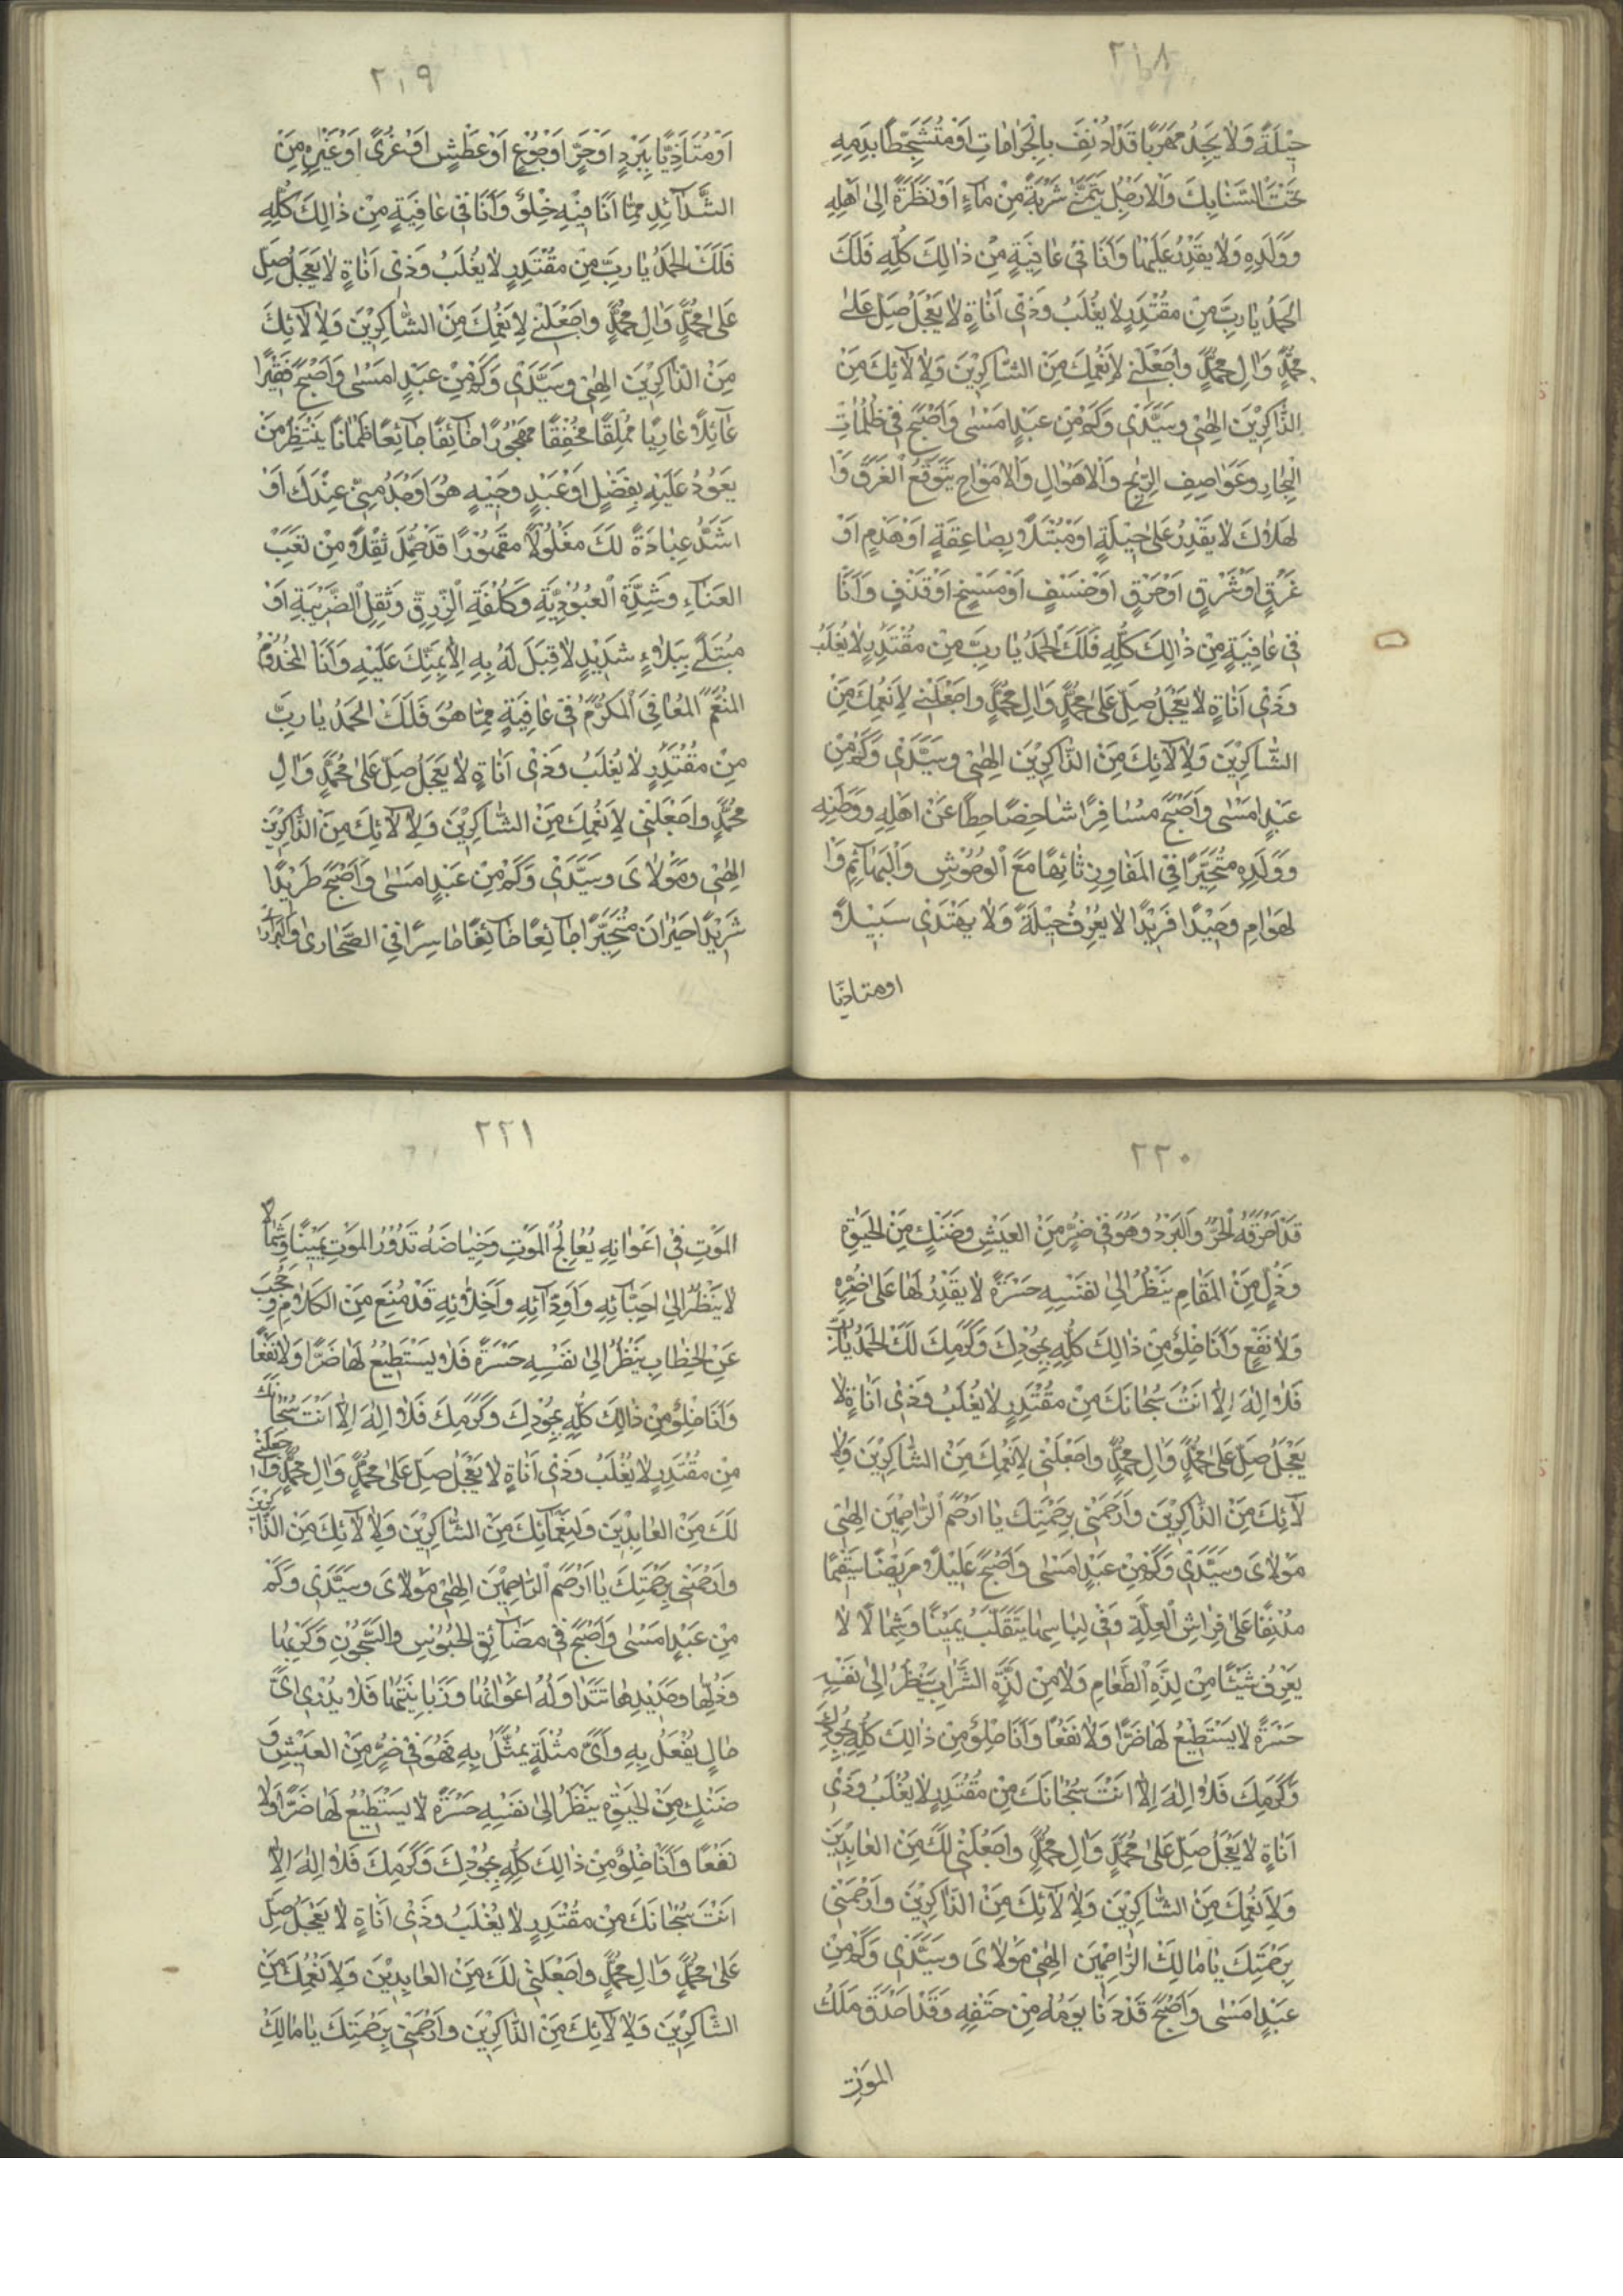 ٢١٨
حِيْلَةً وَلَا يَجِدُ مَهْرَبًا قَدْ اُدْنِفَ بِالْجَرَاحَاتِ اَوْ مُتَشَحِّطًا بِدَمِهِ
تَحْتَ السَّنَابِكِ وَالْاَرْجُلِ يَتَمَنّٰى شَرْبَةً مِنْ مَاءٍ اَوْ نَظْرَةً اِلٰى اَهْلِهِ
وَوَلَدِهِ وَلَا يَقْدِرُ عَلَيْهَا وَاَنَا فِيْ عَافِيَةٍ مِنْ ذَالِكَ كُلِّهِ فَلَكَ
الْحَمْدُ يَا رَبِّ مِنْ مُقْتَدِرٍ لَا يُغْلَبُ وَذِيْ اَنَاةٍ لَا يَعْجَلُ صَلِّ عَلٰى
مُحَمَّدٍ وَاٰلِ مُحَمَّدٍ وَاجْعَلْنِيْ لِاَنْعُمِكَ مِنَ الشَّاكِرِيْنَ وَلِاٰلَائِكَ مِنَ
الذَّاكِرِيْنَ اِلٰهِيْ وَسَيِّدِيْ وَكَمْ مِنْ عَبْدٍ اَمْسٰى وَاَصْبَحَ فِيْ ظُلُمَاتِ
الْبِحَارِ وَعَوَاصِفِ الرِّيَاحِ وَالْاَهْوَالِ وَالْاَمْوَاجِ يَتَوَقَّعُ الْغَرَقَ وَا
لْهَلَاكَ لَا يَقْدِرُ عَلٰى حِيْلَةٍ اَوْ مُبْتَلًا بِصَاعِقَةٍ اَوْ هَدْمٍ اَوْ
غَرْقٍ اَوْ شَرْقٍ اَوْ حَرْقٍ اَوْ خَسْفٍ اَوْ مَسْخٍ اَوْ قَذْفٍ وَاَنَا
فِيْ عَافِيَةٍ مِنْ ذَالِكَ كُلِّهِ فَلَكَ الْحَمْدُ يَا رَبِّ مِنْ مُقْتَدِرٍ لَا يُغْلَبُ
وَذِيْ اَنَاةٍ لَا يَعْجَلُ صَلِّ عَلٰى مُحَمَّدٍ وَاٰلِ مُحَمَّدٍ وَاجْعَلْنِيْ لِاَنْعُمِكَ مِنَ
الشَّاكِرِيْنَ وَلِاٰلَائِكَ مِنَ الذَّاكِرِيْنَ اِلٰهِيْ وَسَيِّدِيْ وَكَمْ مِنْ
عَبْدٍ اَمْسٰى وَاَصْبَحَ مُسَافِرًا شَاخِصًا عَنْ اَهْلِهِ وَوَطَنِهِ
وَوَلَدِهِ مُتَحَيِّرًا فِي الْمَفَاوِزِ تَائِهًا مَعَ الْوُحُوْشِ وَالْبَهَآئِمِ وَا
لْهَوَامِ وَحِيْدًا فَرِيْدًا لَا يَعْرِفُ حِيْلَةً وَلَا يَهْتَدِيْ سَبِيْلًا
او متاذيا
٢١٩
اَوْ مُتَاَذِّيًا بِبَرْدٍ اَوْ حَرٍّ اَوْ جُوْعٍ اَوْ عَطَشٍ اَوْ عُرًى اَوْ غَيْرِهِ مِنَ
الشَّدَآئِدِ مِمَّا اَنَا فِيْهِ خِلْوٌ وَاَنَا فِيْ عَافِيَةٍ مِنْ ذَالِكَ كُلِّهِ
فَلَكَ الْحَمْدُ يَا رَبِّ مِنْ مُقْتَدِرٍ لَا يُغْلَبُ وَذِيْ اَنَاةٍ لَا يَعْجَلُ صَلِّ
عَلٰى مُحَمَّدٍ وَاٰلِ مُحَمَّدٍ وَاجْعَلْنِيْ لِاَنْعُمِكَ مِنَ الشَّاكِرِيْنَ وَلِاٰلَائِكَ
مِنَ الذَّاكِرِيْنَ اِلٰهِيْ وَسَيِّدِيْ وَكَمْ مِنْ عَبْدٍ اَمْسٰى وَاَصْبَحَ فَقِيْرًا
عَآئِلًا عَارِيًا مُمْلِقًا مُخْفِقًا مَهْجُوْرًا خَآئِفًا جَآئِعًا ظَمْاٰنًا يَنْتَظِرُ مَنْ
يَعُوْدُ عَلَيْهِ بِفَضْلٍ اَوْ عَبْدٍ وَجِيْهٍ هُوَ اَوْجَدُ مِنِّيْ عِنْدَكَ اَوْ
اَشَدُّ عِبَادَةً لَكَ مَغْلُوْلًا مَقْهُوْرًا قَدْ حُمِّلَ ثِقْلًا مِنْ تَعَبِ
الْعَنَآءِ وَشِدَّةِ الْعُبُوْدِيَّةِ وَكُلْفَةِ الرِّقِّ وَثِقْلِ الضَّرِيْبَةِ اَوْ
مُبْتَلًى بِبَلَاءٍ شَدِيْدٍ لَا قِبَلَ لَهُ بِهِ اِلَّا بِمَنِّكَ عَلَيْهِ وَاَنَا الْمَخْدُوْمُ
الْمُنَعَّمُ الْمُعَافَى الْمُكَرَّمُ فِيْ عَافِيَةٍ مِمَّا هُوَ فَلَكَ الْحَمْدُ يَا رَبِّ
مِنْ مُقْتَدِرٍ لَا يُغْلَبُ وَذِيْ اَنَاةٍ لَا يَعْجَلُ صَلِّ عَلٰى مُحَمَّدٍ وَاٰلِ
مُحَمَّدٍ وَاجْعَلْنِيْ لِاَنْعُمِكَ مِنَ الشَّاكِرِيْنَ وَلِاٰلَائِكَ مِنَ الذَّاكِرِيْنَ
اِلٰهِيْ وَمَوْلَايَ وَسَيِّدِيْ وَكَمْ مِنْ عَبْدٍ اَمْسٰى وَاَصْبَحَ طَرِيْدًا
شَرِيْدًا حَيْرَانَ مُتَحَيِّرًا جَآئِعًا خَآئِفًا حَاسِرًا فِي الصَّحَارٰى وَالْبَرَارِ
٢٢٠
قَدْ اَحْرَقَهُ الْحَرُّ وَالْبَرْدُ وَهُوَ فِيْ ضُرٍّ مِنَ الْعَيْشِ وَضَنْكٍ مِنَ الْحَيٰوةِ
وَذُلٍّ مِنَ الْمَقَامِ يَنْظُرُ اِلٰى نَفْسِهِ حَسْرَةً لَا يَقْدِرُ لَهَا عَلٰى ضُرٍّ
وَلَا نَفْعٍ وَاَنَا خِلْوٌ مِنْ ذَالِكَ كُلِّهِ بِجُوْدِكَ وَكَرَمِكَ لَكَ الْحَمْدُ يَا رَبِّ
فَلَا اِلٰهَ اِلَّا اَنْتَ سُبْحَانَكَ مِنْ مُقْتَدِرٍ لَا يُغْلَبُ وَذِيْ اَنَاةٍ لَا
يَعْجَلُ صَلِّ عَلٰى مُحَمَّدٍ وَاٰلِ مُحَمَّدٍ وَاجْعَلْنِيْ لِاَنْعُمِكَ مِنَ الشَّاكِرِيْنَ وَلِاٰ
لَآئِكَ مِنَ الذَّاكِرِيْنَ وَارْحَمْنِيْ بِرَحْمَتِكَ يَا اَرْحَمَ الرَّاحِمِيْنَ اِلٰهِيْ
مَوْلَايَ وَسَيِّدِيْ وَكَمْ مِنْ عَبْدٍ اَمْسٰى وَاَصْبَحَ عَلِيْلًا مَرِيْضًا سَقِيْمًا
مُدْنِفًا عَلٰى فِرَاشِ الْعِلَّةِ وَفِيْ لِبَاسِهَا يَتَقَلَّبُ يَمِيْنًا وَشِمَالًا لَا
يَعْرِفُ شَيْئًا مِنْ لَذَّةِ الطَّعَامِ وَلَا مِنْ لَذَّةِ الشَّرَابِ يَنْظُرُ اِلٰى نَفْسِهِ
حَسْرَةً لَا يَسْتَطِيْعُ لَهَا ضَرًّا وَلَا نَفْعًا وَاَنَا خِلْوٌ مِنْ ذَالِكَ كُلِّهِ بِجُوْدِكَ
وَكَرَمِكَ فَلَا اِلٰهَ اِلَّا اَنْتَ سُبْحَانَكَ مِنْ مُقْتَدِرٍ لَا يُغْلَبُ وَذِيْ
اَنَاةٍ لَا يَعْجَلُ صَلِّ عَلٰى مُحَمَّدٍ وَاٰلِ مُحَمَّدٍ وَاجْعَلْنِيْ لَكَ مِنَ الْعَابِدِيْنَ
وَلِاَنْعُمِكَ مِنَ الشَّاكِرِيْنَ وَلِاٰلَآئِكَ مِنَ الذَّاكِرِيْنَ وَارْحَمْنِيْ
بِرَحْمَتِكَ يَا مَالِكَ الرَّاحِمِيْنَ اِلٰهِيْ مَوْلَايَ وَسَيِّدِيْ وَكَمْ مِنْ
عَبْدٍ اَمْسٰى وَاَصْبَحَ قَدْ دَنَا يَوْمُهُ مِنْ حَتْفِهِ وَقَدْ اَحْدَقَ مَلَكُ
الموتِ
٢٢١
الْمَوْتِ فِيْ اَعْوَانِهِ يُعَالِجُ الْمَوْتَ وَحِيَاضَهُ تَدُوْرُ الْمَوْتِ يَمِيْنًا وَشِمَالًا
لَا يَنْظُرُ اِلٰى اَحِبَّآئِهِ وَاَوِدَّآئِهِ وَاَخِلَّائِهِ قَدْ مُنِعَ مِنَ الْكَلَامِ وَحُجِبَ
عَنِ الْخِطَابِ يَنْظُرُ اِلٰى نَفْسِهِ حَسْرَةً فَلَا يَسْتَطِيْعُ لَهَا ضَرًّا وَلَا نَفْعًا
وَاَنَا خِلْوٌ مِنْ ذَالِكَ كُلِّهِ بِجُوْدِكَ وَكَرَمِكَ فَلَا اِلٰهَ اِلَّا اَنْتَ سُبْحَانَكَ
مِنْ مُقْتَدِرٍ لَا يُغْلَبُ وَذِيْ اَنَاةٍ لَا يَعْجَلُ صَلِّ عَلٰى مُحَمَّدٍ وَاٰلِ مُحَمَّدٍ وَاجْعَلْنِيْ
لَكَ مِنَ الْعَابِدِيْنَ وَلِنَعْمَآئِكَ مِنَ الشَّاكِرِيْنَ وَلِاٰلَآئِكَ مِنَ الذَّاكِرِيْنَ
وَارْحَمْنِيْ بِرَحْمَتِكَ يَا اَرْحَمَ الرَّاحِمِيْنَ اِلٰهِيْ مَوْلَايَ وَسَيِّدِيْ وَكَمْ
مِنْ عَبْدٍ اَمْسٰى وَاَصْبَحَ فِيْ مَضَآئِقِ الْحُبُوْسِ وَالسُّجُوْنِ وَكُرَبِهَا
وَذُلِّهَا وَحَدِيْدِهَا تَتَدَاوَلُهُ اَعْوَانُهَا وَزَبَانِيَتُهَا فَلَا يَدْرِيْ اَيُّ
حَالٍ يُفْعَلُ بِهِ وَاَيُّ مُثْلَةٍ يُمَثَّلُ بِهِ فَهُوَ فِيْ ضُرٍّ مِنَ الْعَيْشِ وَ
ضَنْكٍ مِنَ الْحَيٰوةِ يَنْظُرُ اِلٰى نَفْسِهِ حَسْرَةً لَا يَسْتَطِيْعُ لَهَا ضَرًّا وَلَا
نَفْعًا وَاَنَا خِلْوٌ مِنْ ذَالِكَ كُلِّهِ بِجُوْدِكَ وَكَرَمِكَ فَلَا اِلٰهَ اِلَّا
اَنْتَ سُبْحَانَكَ مِنْ مُقْتَدِرٍ لَا يُغْلَبُ وَذِيْ اَنَاةٍ لَا يَعْجَلُ صَلِّ
عَلٰى مُحَمَّدٍ وَاٰلِ مُحَمَّدٍ وَاجْعَلْنِيْ لَكَ مِنَ الْعَابِدِيْنَ وَلِاَنْعُمِكَ مِنَ
الشَّاكِرِيْنَ وَلِاٰلَآئِكَ مِنَ الذَّاكِرِيْنَ وَارْحَمْنِيْ بِرَحْمَتِكَ يَا مَالِكَ